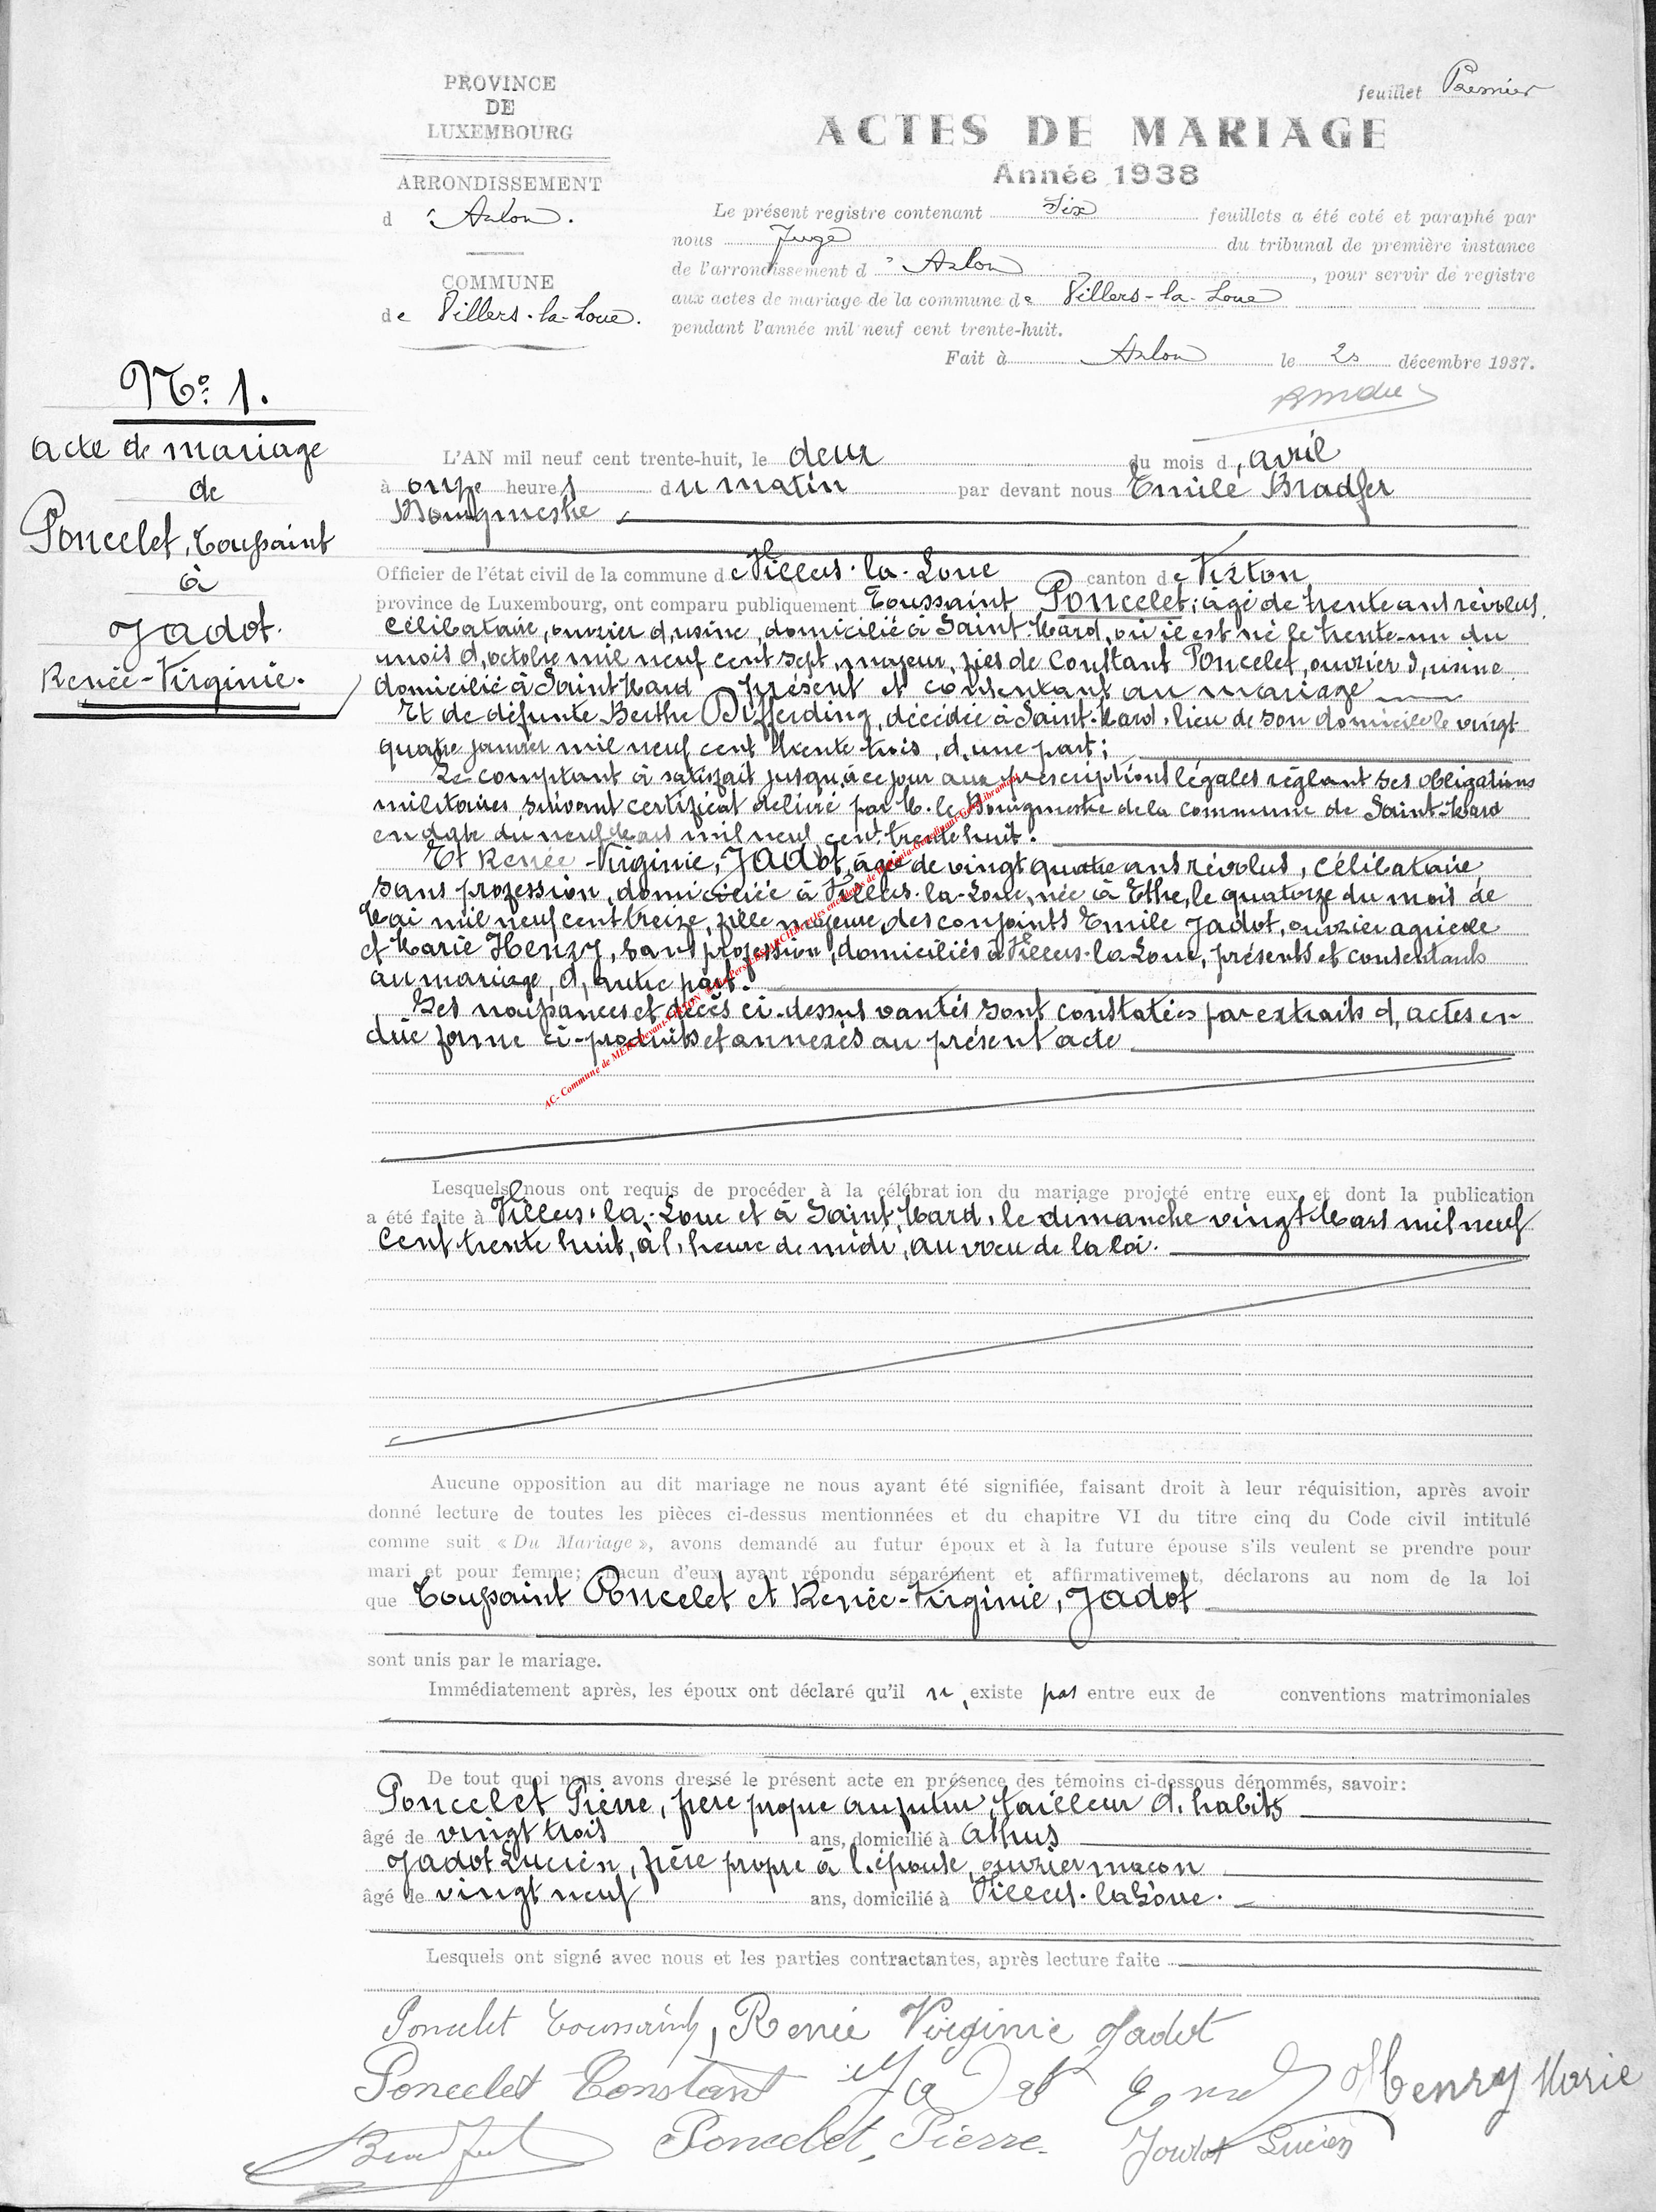 feuillet Premier
PROVINCE
DE
LUXEMBOURG
ARRONDISSEMENT
d'Arlon.
COMMUNE
de Villers-la-Loue.
ACTES DE MARIAGE
Année 1938
Le présent registre contenant Six feuillets a été coté et paraphé par
nous Juge du tribunal de première instance
de l'arrondissement d'Arlon, pour servir de registre
aux actes de mariage de la commune de Villers-la-Loue
pendant l'année mil neuf cent trente-huit.
Fait à Arlon le 20 décembre 1937.
No. 1.
acte de mariage
de
Poncelet, Toussaint
à
Jadot.
Renée-Virginie.
L'AN mil neuf cent trente-huit, le deux du mois d'avril
à onze heures du matin par devant nous Emile Bradfer
Bourgmestre
Officier de l'état civil de la commune de Villers-la-Loue canton de Virton
province de Luxembourg, ont comparu publiquement Toussaint Poncelet, âgé de trente ans révolus,
célibataire, ouvrier d'usine, domicilié à Saint-Mard, où il est né le trente-un du
mois d'octobre mil neuf cent sept, majeur, fils de Constant Poncelet, ouvrier d'usine
domicilié à Saint Mard présent et consentant au mariage
Et de défunte Berthe Differding, décédée à Saint-Mard, lieu de son domicile le vingt
quatre janvier mil neuf cent trente trois, d'une part;
Le comptant à satisfait jusqu'à ce jour aux prescriptions légales réglant ses obligations
militaires, suivant certificat délivré par M. le Bourgmestre de la commune de Saint-Mard
en date du neuf Mars mil neuf cent trente huit.
Et Renée-Virginie, Jadot, âgée de vingt quatre ans révolus, célibataire,
sans profession, domiciliée à Villers-la-Loue, née à Ethe, le quatorze du mois de
Mai mil neuf cent treize, fille majeure des conjoints Emile Jadot, ouvrier agricole
et Marie Henry, sans profession, domiciliés à Villers-la Loue, présents et consentants
au mariage, d'autre part.
Les naissances et décès ci-dessus vantés sont constatés par extraits d'actes en
due forme ci-produits et annexés au présent acte
AC- Commune de MEIX-devant-VIRTON
Lesquels nous ont requis de procéder à la célébration du mariage projeté entre eux et dont la publication
a été faite à Villers-la-Loue et à Saint Mard, le dimanche vingt Mars mil neuf
cent trente huit, à l'heure de midi, au vœu de la loi.
Aucune opposition au dit mariage ne nous ayant été signifiée, faisant droit à leur réquisition, après avoir
donné lecture de toutes les pièces ci-dessus mentionnées et du chapitre VI du titre cinq du Code civil intitulé
comme suit « Du Mariage », avons demandé au futur époux et à la future épouse s'ils veulent se prendre pour
mari et pour femme; chacun d'eux ayant répondu séparément et affirmativement, déclarons au nom de la loi
que Toussaint Poncelet et Renée-Virginie, Jadot
sont unis par le mariage.
Immédiatement après, les époux ont déclaré qu'il n'existe pas entre eux de conventions matrimoniales
De tout quoi nous avons dressé le présent acte en présence des témoins ci-dessous dénommés, savoir:
Poncelet Pierre, frère propre au futur, tailleur d'habits
âgé de vingt trois ans, domicilié à Athus
Jadot Lucien, frère propre à l'épouse, ouvrier maçon
âgé de vingt neuf ans, domicilié à Villers-la Loue.
Lesquels ont signé avec nous et les parties contractantes, après lecture faite
Poncelet Toussaint, Renée Virginie Jadot
Poncelet Constant Jadot Emile Henry Marie
Bradfer Poncelet Pierre Jadot Lucien